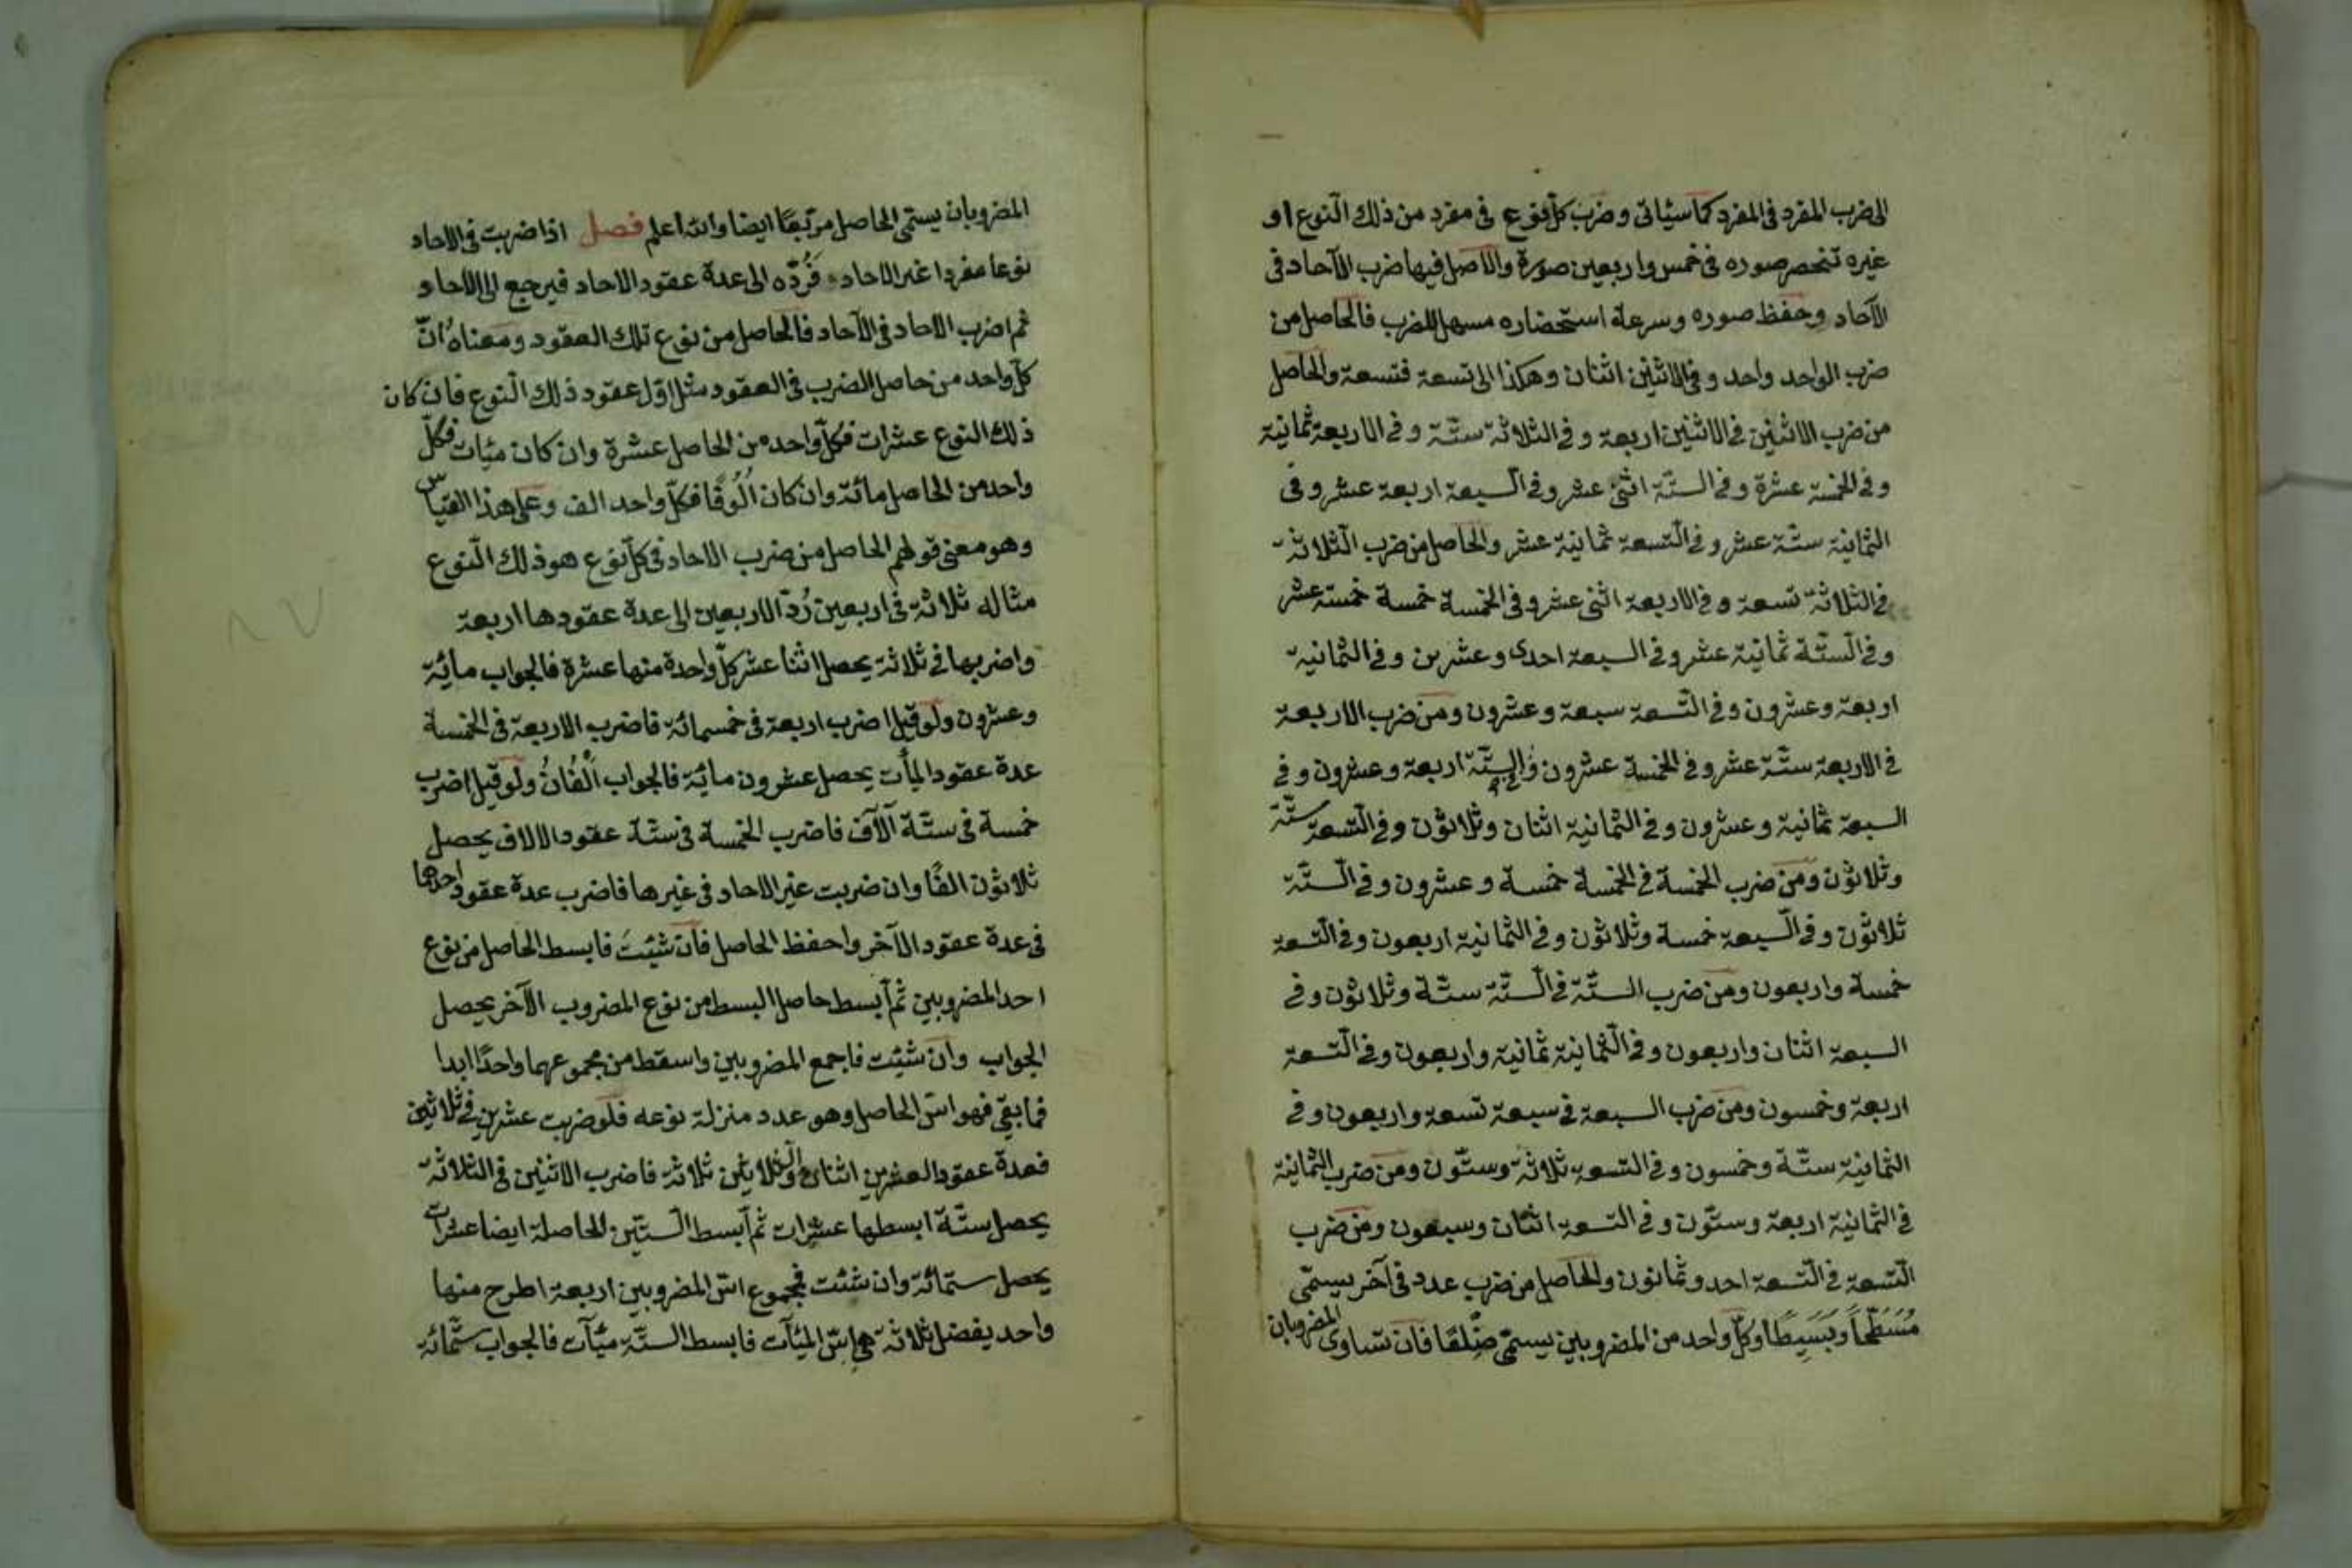 الى ضرب المفرد فى المفرد كما سيأتى وضرب كل نوع فى مفرد من ذلك النوع او
غيره تنحصر صوره فى خمس واربعين صورة والاصل فيها ضرب الآحاد فى
الآحاد وحفظ صوره وسرعة استحضاره مسهل للضرب فالحاصل من
ضرب الواحد واحد وفى الاثنين اثنان وهكذا الى تسعة فتسعة والحاصل
من ضرب الاثنين فى الاثنين اربعة وفى الثلاثة ستّة وفى الاربعة ثمانية
وفى الخمسة عشرة وفى الستّة اثنى عشر وفى السبعة اربعة عشر وفى
الثمانية ستّة عشر وفى التسعة ثمانية عشر والحاصل من ضرب الثلاثة
فى الثلاثة تسعة وفى الاربعة اثنى عشر وفى الخمسة خمسة خمسة عشر
وفى الستّة ثمانية عشر وفى السبعة احدى وعشرين وفى الثمانية
اربعة وعشرون وفى التسعة سبعة وعشرون ومن ضرب الاربعة
فى الاربعة ستّة عشر وفى الخمسة عشرون وفى الستّة اربعة وعشرون وفى
السبعة ثمانية وعشرون وفى الثمانية اثنان وثلاثون وفى التسعة ستّة
وثلاثون ومن ضرب الخمسة فى الخمسة خمسة وعشرون وفى الستّة
ثلاثون وفى السبعة خمسة وثلاثون وفى الثمانية اربعون وفى التسعة
خمسة واربعون ومن ضرب الستّة فى الستّة ستّة وثلاثون وفى
السبعة اثنان واربعون وفى الثمانية ثمانية واربعون وفى التسعة
اربعة وخمسون ومن ضرب السبعة فى سبعة تسعة واربعون وفى
الثمانية ستّة وخمسون وفى التسعة ثلاثة وستّون ومن ضرب الثمانية
فى الثمانية اربعة وستّون وفى التسعة اثنان وسبعون ومن ضرب
التسعة فى التسعة احد وثمانون والحاصل من ضرب عدد فى آخر يسمّى
مُسَطَّحاً وبَسِيطًا وكلّ واحد من المضروبين يسمّى ضِلعًا فان تساوى المضروبان
المضروبان يسمّى الحاصل مربّعًا ايضا والله اعلم فصل اذا ضربت فى الاحاد
نوعا مفردا غير الاحاد فَرُدّه الى عدة عقود الاحاد فيرجع الى الاحاد
ثم اضرب الاحاد فى الآحاد فالحاصل من نوع تلك العقود ومعناه انّ
كلّ واحد من حاصل الضرب فى العقود مثل اوّل عقود ذلك النوع فان كان
ذلك النوع عشرات فكلّ واحد من الحاصل عشرة وان كان مئات فكلّ
واحد من الحاصل مائة وان كان اُلُوفًا فكلّ واحد الف وعلى هذا القياس
وهو معنى قولهم الحاصل من ضرب الاحاد فى كلّ نوع هو ذلك النّوع
مثاله ثلاثة فى اربعين رُدّ الاربعين الى عدة عقودها اربعة
واضربها فى ثلاثة يحصل اثنا عشر كلّ واحدة منها عشرة فالجواب مائة
وعشرون ولو قيل اضرب اربعة فى خمسمائة فاضرب الاربعة فى الخمسة
عدة عقود المأت يحصل عشرون مائة فالجواب اَلْفَانُ ولو قيل اضرب
خمسة فى ستّة آلآف فاضرب الخمسة فى ستّة عقود الالاف يحصل
ثلاثون الفًا وان ضربت غير الاحاد فى غيرها فاضرب عدة عقود احدها
فى عدة عقود الآخر واحفظ الحاصل فان شئتَ فابسط الحاصل من نوع
احد المضروبين ثم ابسط حاصل البسط من نوع المضروب الآخر يحصل
الجواب وان شئت فاجمع المضروبين واسقط من مجموعهما واحدًا ابدا
فما بقى فهو اسّ الحاصل وهو عدد منزلة نوعه فلو ضربت عشرين فى ثلاثين
فعدة عقود العشرين اثنان والثلاثين ثلاثة فاضرب الاثنين فى الثلاثة
يحصل ستّة ابسطها عشرات ثم ابسط الستّين الحاصلة ايضا عشرات
يحصل ستمائة وان شئت فمجموع اسّ المضروبين اربعة اطرح منها
واحد يفضل ثلاثة هى اسّ المئآت فابسط الستّة مئآت فالجواب ستّمائة